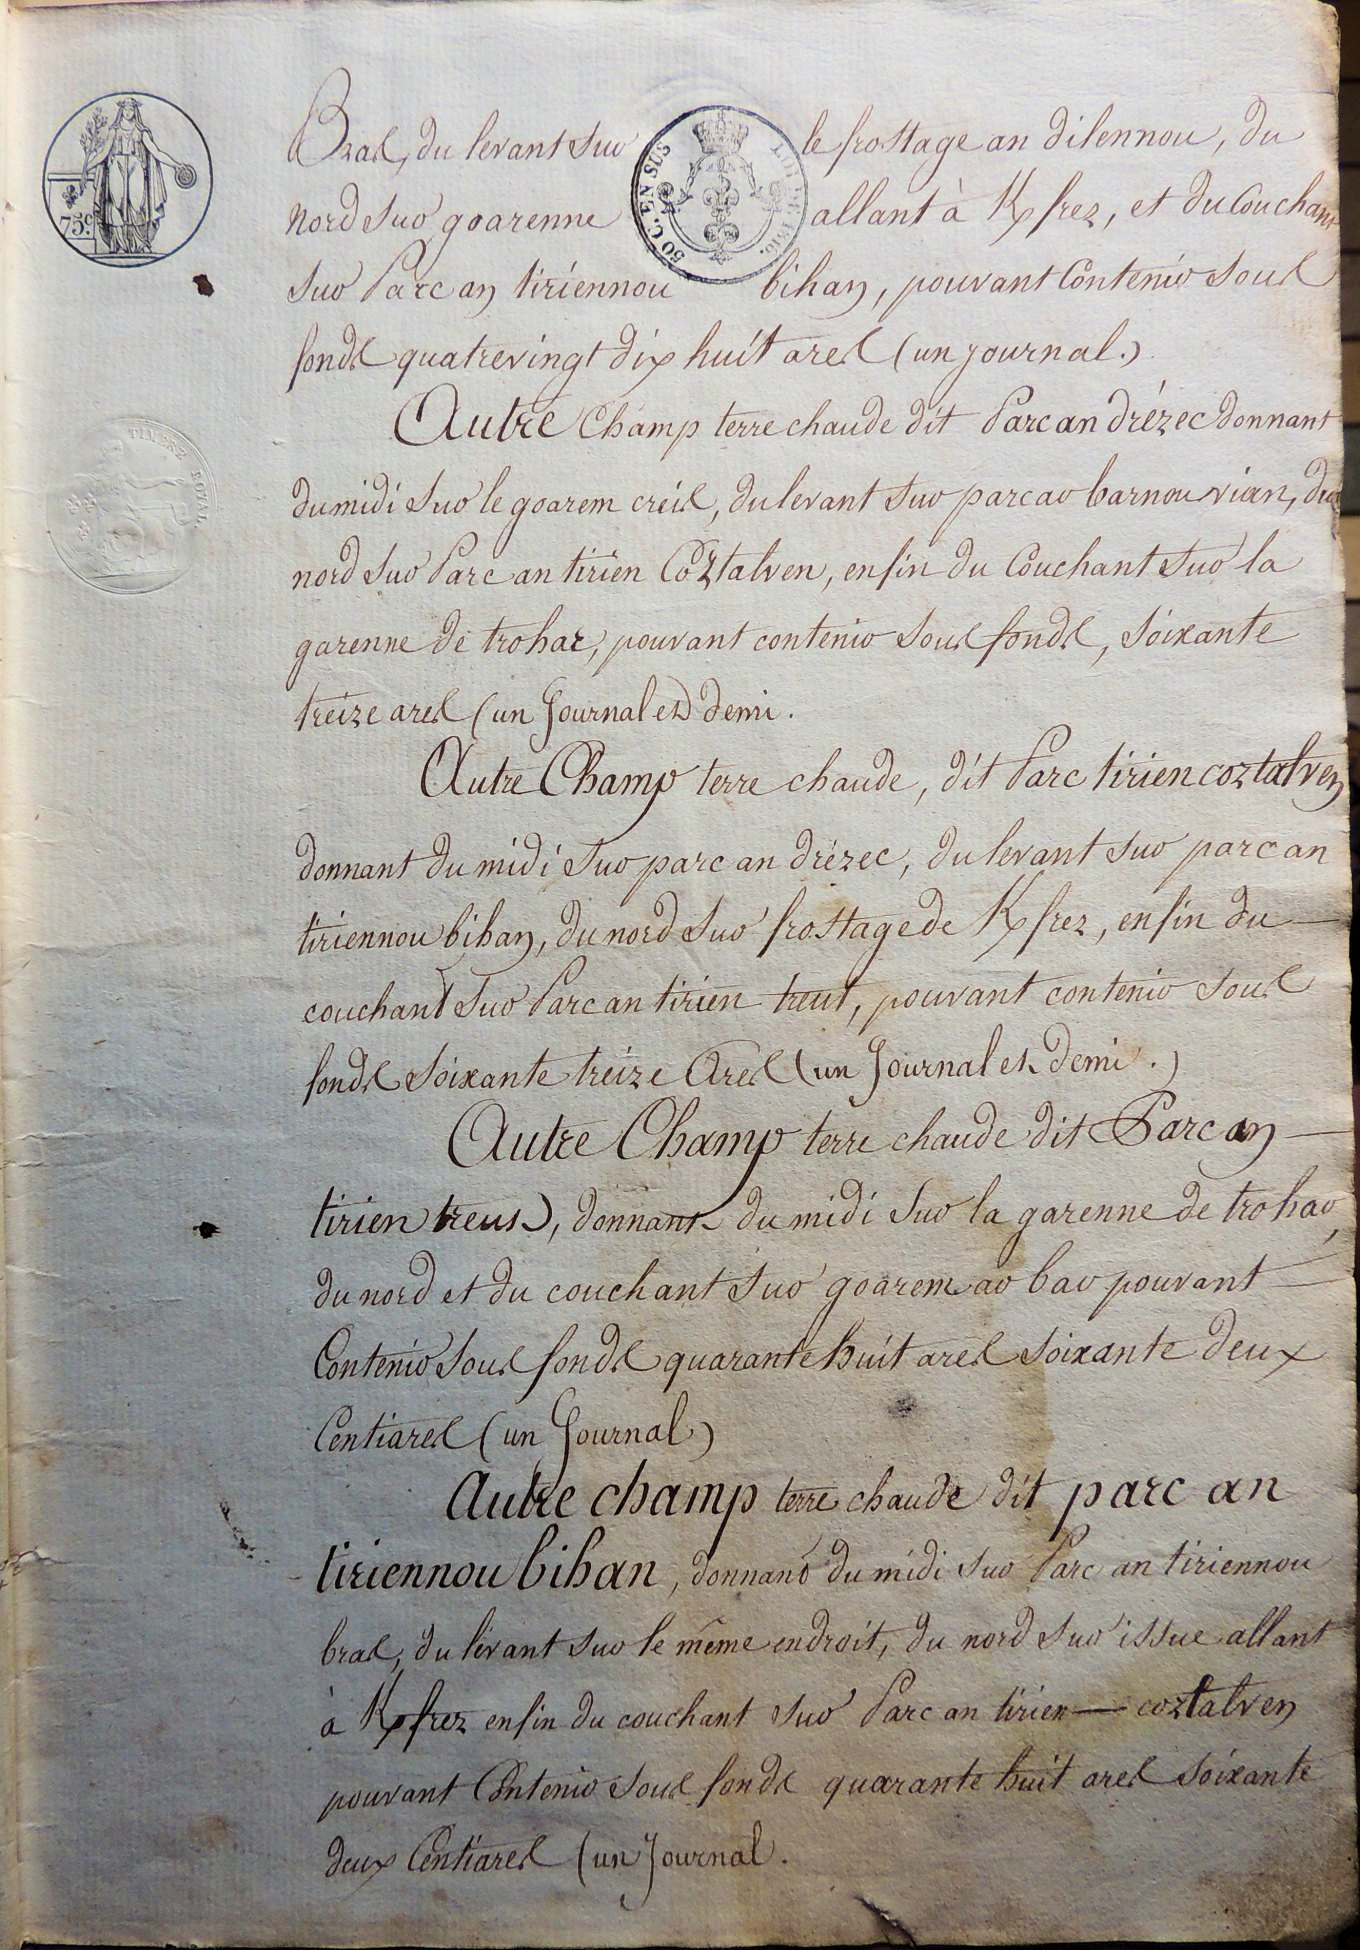 75 c.
50 C. EN SUS
LOI DE 1816.
TIMBRE ROYAL
Bras, du levant sur le frostage an dilennou, du
nord sur goarenne allant à K/frez, et du Couchant
sur Parc an tiriennou bihan, pouvant Contenir sous
fonds quatrevingt dix huit ares (un journal.)
Autre Champ terre chaude dit Parc an drézec donnant
du midi sur le goarem creis, du levant sur parc ar barnou vian, du
nord sur Parc an tirien Coztalven, enfin du Couchant sur la
garenne de trohar, pouvant contenir sous fonds, soixante
treize ares (un Journal et demi.
Autre Champ terre chaude, dit Parc tirien coztalven
donnant du midi sur parc an drézec, du levant sur parc an
tiriennou bihan, du nord sur frostage de K/frez, enfin du
couchant sur Parc an tirien treut, pouvant contenir sous
fonds soixante treize Ares (un Journal et demi.)
Autre Champ terre chaude dit Parc an
tirien treus, donnant du midi sur la garenne de trohar,
du nord et du couchant sur goarem ar bar pouvant
Contenir sous fonds quarante huit ares soixante deux
Centiares (un Journal)
Autre champ terre chaude dit parc an
tiriennou bihan, donnant du midi sur Parc an tiriennou
bras, du lévant sur le même endroit, du nord sur issue allant
à K/frez enfin du couchant sur Parc an tirien coztalven
pouvant Contenir sous fonds quarante huit ares soixante
deux Centiares (un Journal.